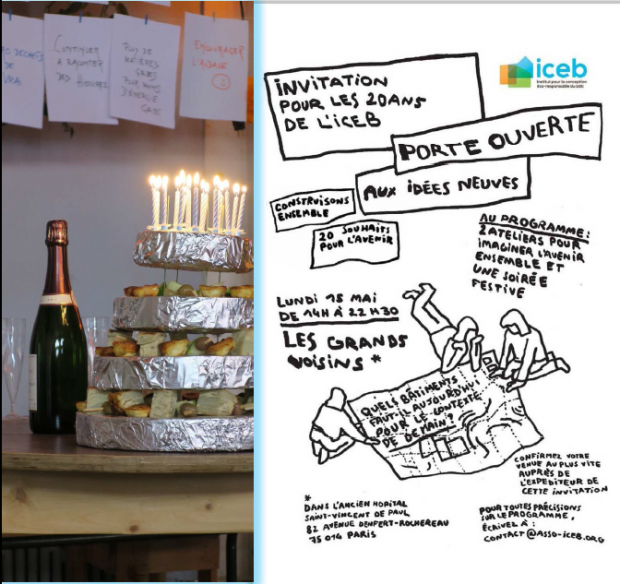 CONTINUER
A RACONTER
DES
PLUS DE
MATIÈRES
GRISES
POUR MOINS
D'ENERGIE
GRISE
ENCOURAGER
L'AUDACE
iceb
Institut pour la conception
éco-responsable du bâti
INVITATION
POUR LES 20 ANS
DE L'ICEB
PORTE OUVERTE
AUX IDÉES NEUVES
CONSTRUISONS
ENSEMBLE
20 SOUHAITS
POUR L'AVENIR
AU PROGRAMME :
2 ATELIERS POUR
IMAGINER L'AVENIR
ENSEMBLE ET
UNE SOIRÉE
FESTIVE
LUNDI 15 MAI
DE 14H À 22H30
LES GRANDS
VOISINS *
QUELS BÂTIMENTS
FAUT-IL AUJOURD'HUI
POUR LE CONTEXTE
DE DEMAIN ?
CONFIRMEZ VOTRE
VENUE AU PLUS VITE
AUPRÈS DE
L'EXPEDITEUR DE
CETTE INVITATION
*
DANS L'ANCIEN HOPITAL
SAINT-VINCENT DE PAUL
82 AVENUE DENFERT-ROCHEREAU
75014 PARIS
POUR TOUTES PRÉCISIONS
SUR LE PROGRAMME,
ÉCRIVEZ À :
CONTACT@ASSO-ICEB.ORG